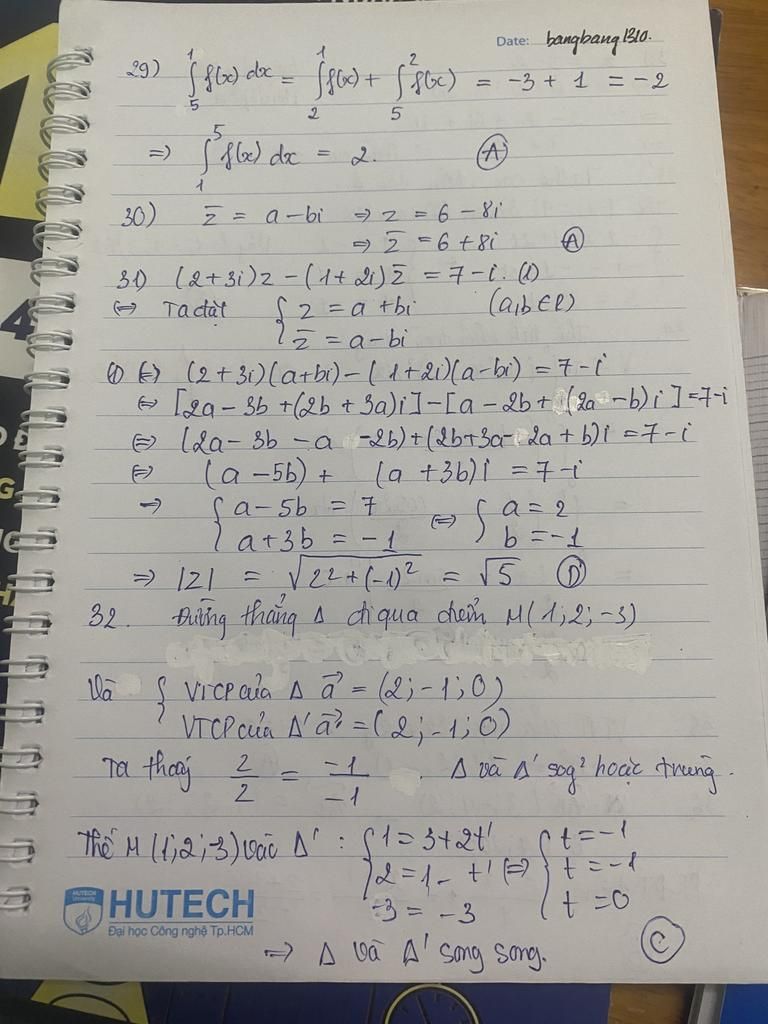 Date: bangbang1310.
29) ∫₅¹ f(x) dx = ∫₂¹ f(x) + ∫₅² f(x) = -3 + 1 = -2
=> ∫₁⁵ f(x) dx = 2. (A)
30) z̅ = a - bi => z = 6 - 8i
=> z̅ = 6 + 8i (A)
31) (2+3i)z - (1+2i)z̅ = 7 - i. (1)
<=> Ta đặt { z = a + bi (a,b ∈ R)
z̅ = a - bi
(1) <=> (2+3i)(a+bi) - (1+2i)(a-bi) = 7 - i
<=> [2a - 3b + (2b + 3a)i] - [a - 2b + (2a - b)i] = 7 - i
<=> (2a - 3b - a - 2b) + (2b + 3a - 2a + b)i = 7 - i
<=> (a - 5b) + (a + 3b)i = 7 - i
-> { a - 5b = 7 <=> { a = 2
a + 3b = -1 b = -1
=> |z| = √(2² + (-1)²) = √5 (D)
32. Đường thẳng Δ đi qua điểm M(1;2;-3)
Và { VTCP của Δ a⃗ = (2;-1;0)
VTCP của Δ' a⃗' = (2;-1;0)
Ta thấy 2/2 = -1/-1 . Δ và Δ' sog² hoặc trùng.
Thế M(1;2;-3) vào Δ' : { 1 = 3 + 2t' <=> { t = -1
2 = 1 - t' t = -1
-3 = -3 t = 0
HUTECH University
HUTECH
Đại học Công nghệ Tp.HCM
=> Δ và Δ' song song. (C)